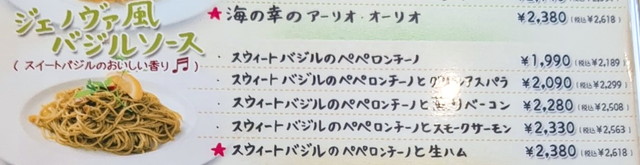 ★ 海の幸のアーリオ・オーリオ ¥2,380 (税込¥2,618)
ジェノヴァ風
バジルソース
( スイートバジルのおいしい香り♬ )
・ スウィートバジルのペペロンチーノ ¥1,990 (税込¥2,189)
・ スウィートバジルのペペロンチーノとグリーンアスパラ ¥2,090 (税込¥2,299)
・ スウィートバジルのペペロンチーノと ベーコン ¥2,280 (税込¥2,508)
・ スウィートバジルのペペロンチーノとスモークサーモン ¥2,330 (税込¥2,563)
★ スウィートバジルのペペロンチーノと生ハム ¥2,380 (税込¥2,618)